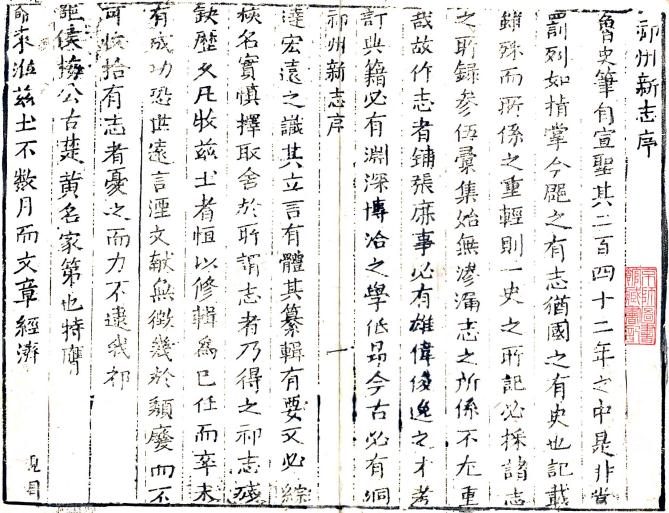 祁州新志序
魯史筆自宣聖其二百四十二年之中是非賞
罰列如指掌今之有志猶國之有史也記載
錯殊而所係之重輕則一史之所記必採諸志
之所錄參伍彙集始無滲漏志之所係不尤重
哉故作志者鋪張庶事必有雄偉俊逸之才考
訂典籍必有淵深博洽之學低昂今古必有洞
祁州新志序 一
達宏遠之識其立言有體其纂輯有要又必綜
核名實慎擇取舍於所謂志者乃得之祁志殘
缺歷久凡牧茲土者恒以修輯為己任而卒未
有成功恐世遠言湮文獻無徵幾於頹廢而不
可收拾有志者憂之而力不逮我祁
侯梅公古楚黃名家第也特膺
命來蒞茲土不數月而文章經濟